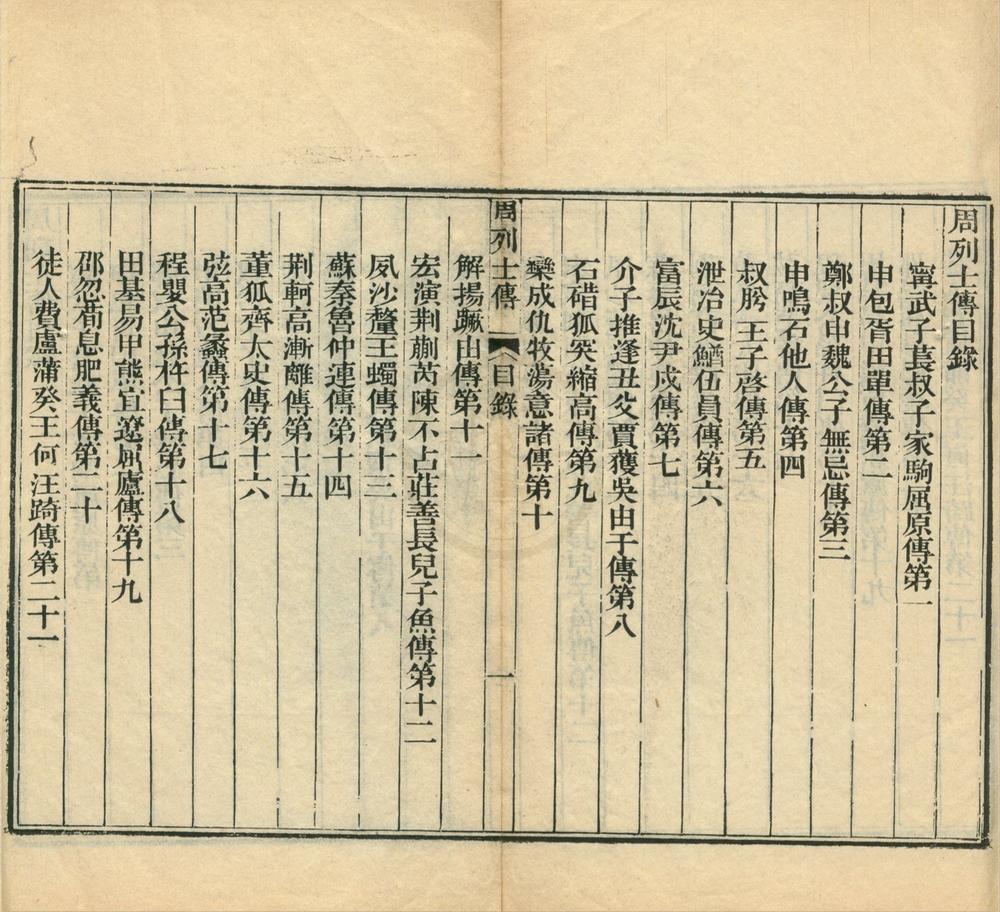 周列士傳目錄
甯武子萇叔子家駒屈原傳第一
申包胥田單傳第二
鄭叔申魏公子無忌傳第三
申鳴石他人傳第四
叔肸王子啓傳第五
泄冶史鰌伍員傳第六
富辰沈尹戍傳第七
介子推逢丑父賈獲吳由于傳第八
石碏狐突縮高傳第九
欒成仇牧蕩意諸傳第十
周列士傳 目錄 一
解揚蹶由傳第十一
宏演荆蒯芮陳不占莊善長兒子魚傳第十二
夙沙釐王蠋傳第十三
蘇秦魯仲連傳第十四
荆軻高漸離傳第十五
董狐齊太史傳第十六
弦高范蠡傳第十七
程嬰公孫杵臼傳第十八
田基易甲熊宜遼屈廬傳第十九
邵忽荀息肥義傳第二十
徒人費盧蒲癸王何汪踦傳第二十一